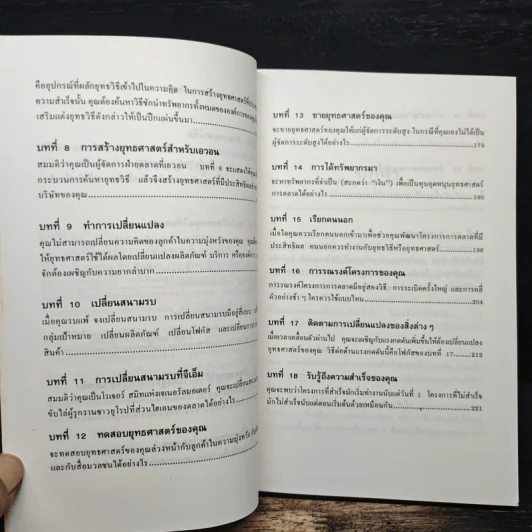 คืออุปกรณ์ที่ผลักยุทธวิธีเข้าไปในความคิด ในการสร้างยุทธศาสตร์ที่
ความสำเร็จนั้น คุณต้องค้นหาวิธีชักนำทรัพยากรทั้งหมดขององค์การของคุณ
เสริมแต่งยุทธวิธีดังกล่าวให้เป็นปึกแผ่นขึ้นมา
บทที่ 8 การสร้างยุทธศาสตร์สำหรับเอวอน
สมมติว่าคุณเป็นผู้จัดการฝ่ายตลาดที่เอวอน บทที่ 8 จะแสดงให้คุณ
กระบวนการค้นหายุทธวิธี แล้วจึงสร้างยุทธศาสตร์ที่มีประสิทธิ
บริษัทของคุณ
บทที่ 9 ทำการเปลี่ยนแปลง
คุณไม่สามารถเปลี่ยนความคิดของลูกค้าในความมุ่งหวังของคุณ
ให้ยุทธวิธีใช้ได้ผลโดยเปลี่ยนแปลงผลิตภัณฑ์ บริการ หรือองค์การ
จักต้องเผชิญกับความยากลำบาก
บทที่ 10 เปลี่ยนสนามรบ
เมื่อคุณรบแพ้ จงเปลี่ยนสนามรบ การเปลี่ยนสนามรบมีอยู่สี่แบบ
กลุ่มเป้าหมาย เปลี่ยนผลิตภัณฑ์ เปลี่ยนโฟกัส และเปลี่ยน
สินค้า
บทที่ 11 การเปลี่ยนสนามรบที่จีเอ็ม
สมมติว่าคุณเป็นโรเจอร์ สมิทแห่งเจเนอรัลมอเตอร์ คุณจะเปลี่ยน
ขับไล่ผู้รุกรานชาวยุโรปที่ส่วนไฮเอนของตลาดได้อย่างไร
บทที่ 12 ทดสอบยุทธศาสตร์ของคุณ
จะทดสอบยุทธศาสตร์ของคุณล่วงหน้ากับลูกค้าในความมุ่งหวัง
และกับสื่อมวลชนได้อย่างไร
บทที่ 13 ขายยุทธศาสตร์ของคุณ
จะขายยุทธศาสตร์ของคุณให้แก่ผู้จัดการระดับสูง ในกรณีที่คุณเองไม่ได้เป็น
ผู้จัดการระดับสูงได้อย่างไร 179
บทที่ 14 การได้ทรัพยากรมา
จะหาทรัพยากรที่จำเป็น (สะกดว่า "เงิน") เพื่อเป็นทุนอุดหนุนยุทธศาสตร์
การตลาดได้อย่างไร 190
บทที่ 15 เรียกคนนอก
เมื่อใดคุณควรเรียกคนนอกเข้ามาเพื่อช่วยคุณพัฒนาโครงการการตลาดที่มี
ประสิทธิผล คนนอกควรทำงานกับยุทธวิธีหรือยุทธศาสตร์ 198
บทที่ 16 การรณรงค์โครงการของคุณ
การรณรงค์โครงการการตลาดมีอยู่สองวิธี : การระเบิดครั้งใหญ่ และการคลี่
ตัวอย่างช้า ๆ ใครควรใช้แบบไหน 204
บทที่ 17 ติดตามการเปลี่ยนแปลงของสิ่งต่าง ๆ
เมื่อเวลาเคลื่อนตัวผ่านไป คุณจะเผชิญกับแรงกดดันเพิ่มขึ้นให้ต้องเปลี่ยนแปลง
ยุทธศาสตร์ของคุณ วิธีต่อต้านแรงกดดันนี้คือโฟกัสของบทที่ 17 212
บทที่ 18 รับรู้ถึงความสำเร็จของคุณ
คุณจะพบว่าโครงการที่สำเร็จมักเริ่มทำงานนับแต่วันที่ 1 โครงการที่ไม่สำเร็จ
มักไม่สำเร็จนับแต่ตอนเริ่มต้นด้วยเหมือนกัน 221